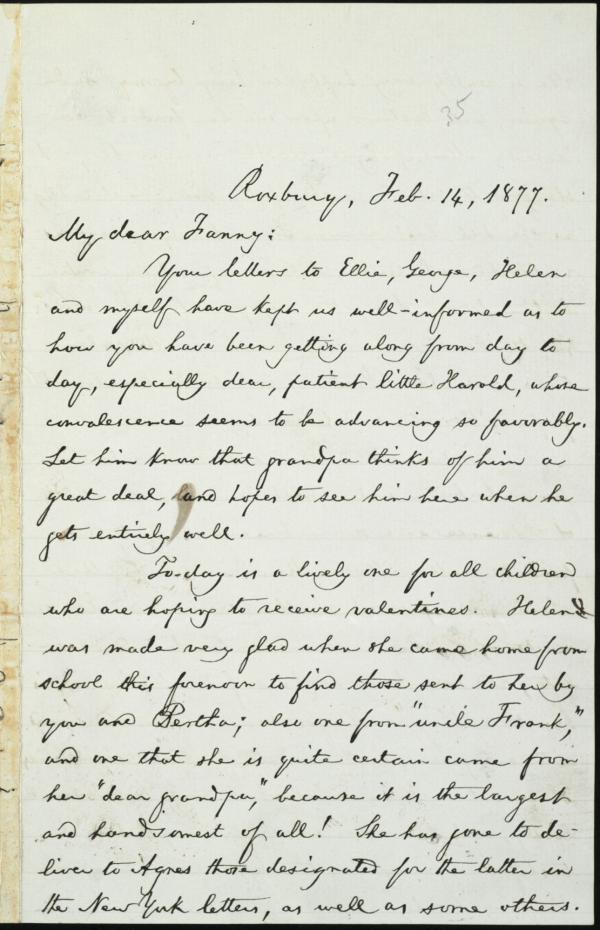 35
Roxbury, Feb. 14, 1877.
My dear Fanny:
Your letters to Ellie, George, Helen
and myself have kept us well-informed as to
how you have been getting along from day to
day, especially dear, patient little Harold, whose
convalescence seems to be advancing so favorably.
Let him know that grandpa thinks of him a
great deal, and hopes to see him here when he
gets entirely well.
To-day is a lively one for all children
who are hoping to receive valentines. Helen
was made very glad when she came home from
school this forenoon to find those sent to her by
you and Bertha; also one from "uncle Frank,"
and one that she is quite certain came from
her "dear grandpa," because it is the largest
and handsomest of all! She has gone to de-
liver to Agnes those designated for the latter in
the New York letters, as well as some others.